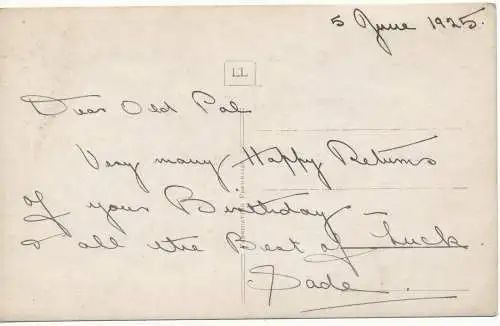 5 June 1925.
LL
Dear Old Pal
Very many Happy Returns
of your Birthday
& all the Best of Luck.
Sade